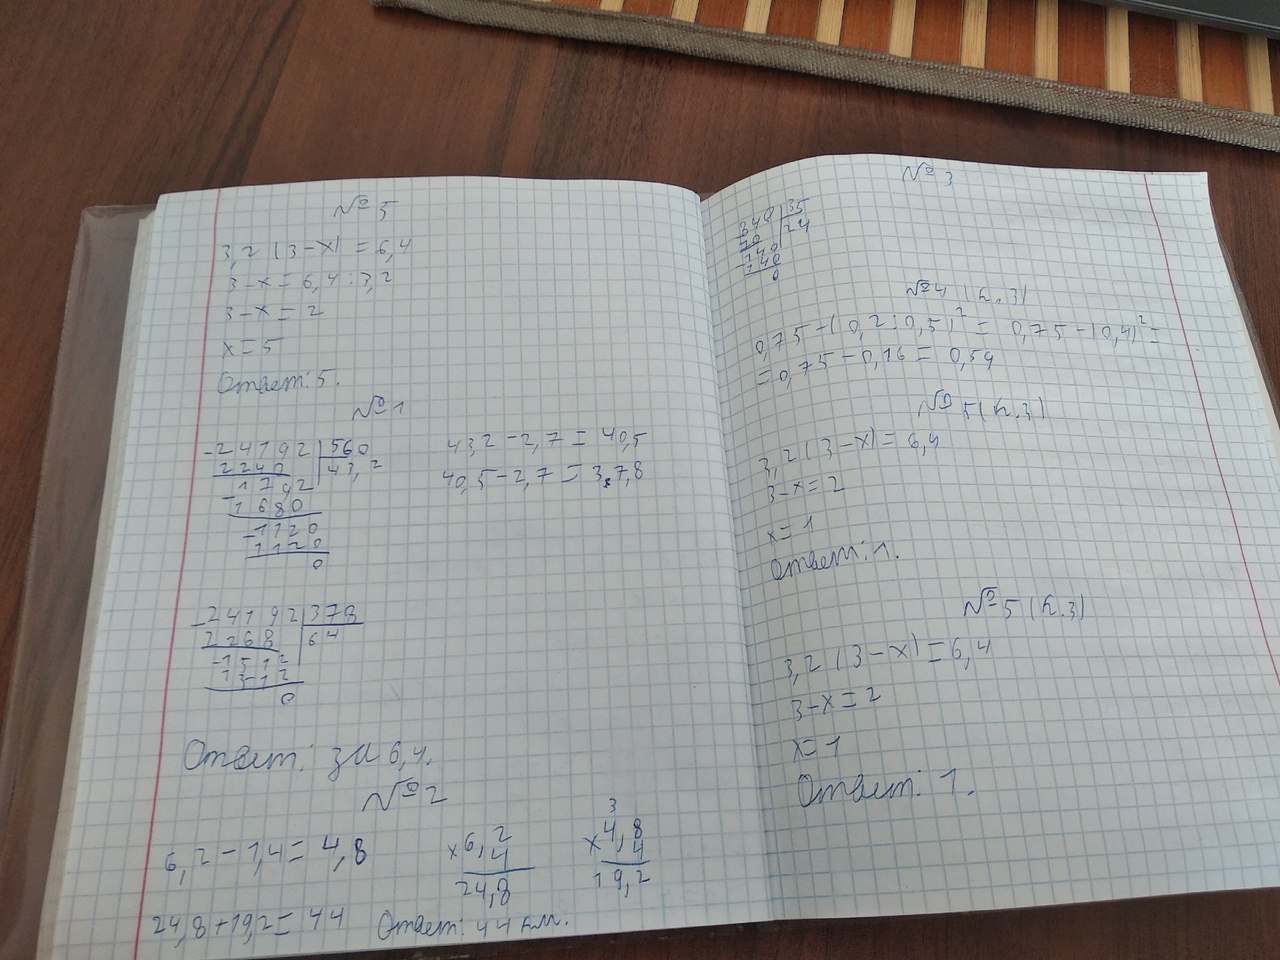 № 5
3,2 (3-x) = 6,4
3-x = 6,4 : 3,2
3-x = 2
x=5
Ответ: 5.
№ 1
-24192 | 560
2240 | 43,2
-1792
1680
-1120
1120
0
43,2-2,7 = 40,5
40,5-2,7 = 37,8
-24192 | 378
2268 | 64
-1512
1512
0
Ответ: за 6,4.
№ 2
6,2-1,4 = 4,8
×6,2
4
24,8
3
×4,8
4
19,2
24,8+19,2 = 44
Ответ: 44 км.
№ 3
840 | 35
70 | 24
-140
140
0
№ 4 (к.3)
0,75-(0,2:0,5)² = 0,75-(0,4)² =
= 0,75-0,16 = 0,59
№ 5 (к.3)
3,2 (3-x) = 6,4
3-x = 2
x=1
Ответ: 1.
№ 5 (к.3)
3,2 (3-x) = 6,4
3-x = 2
x=1
Ответ: 1.